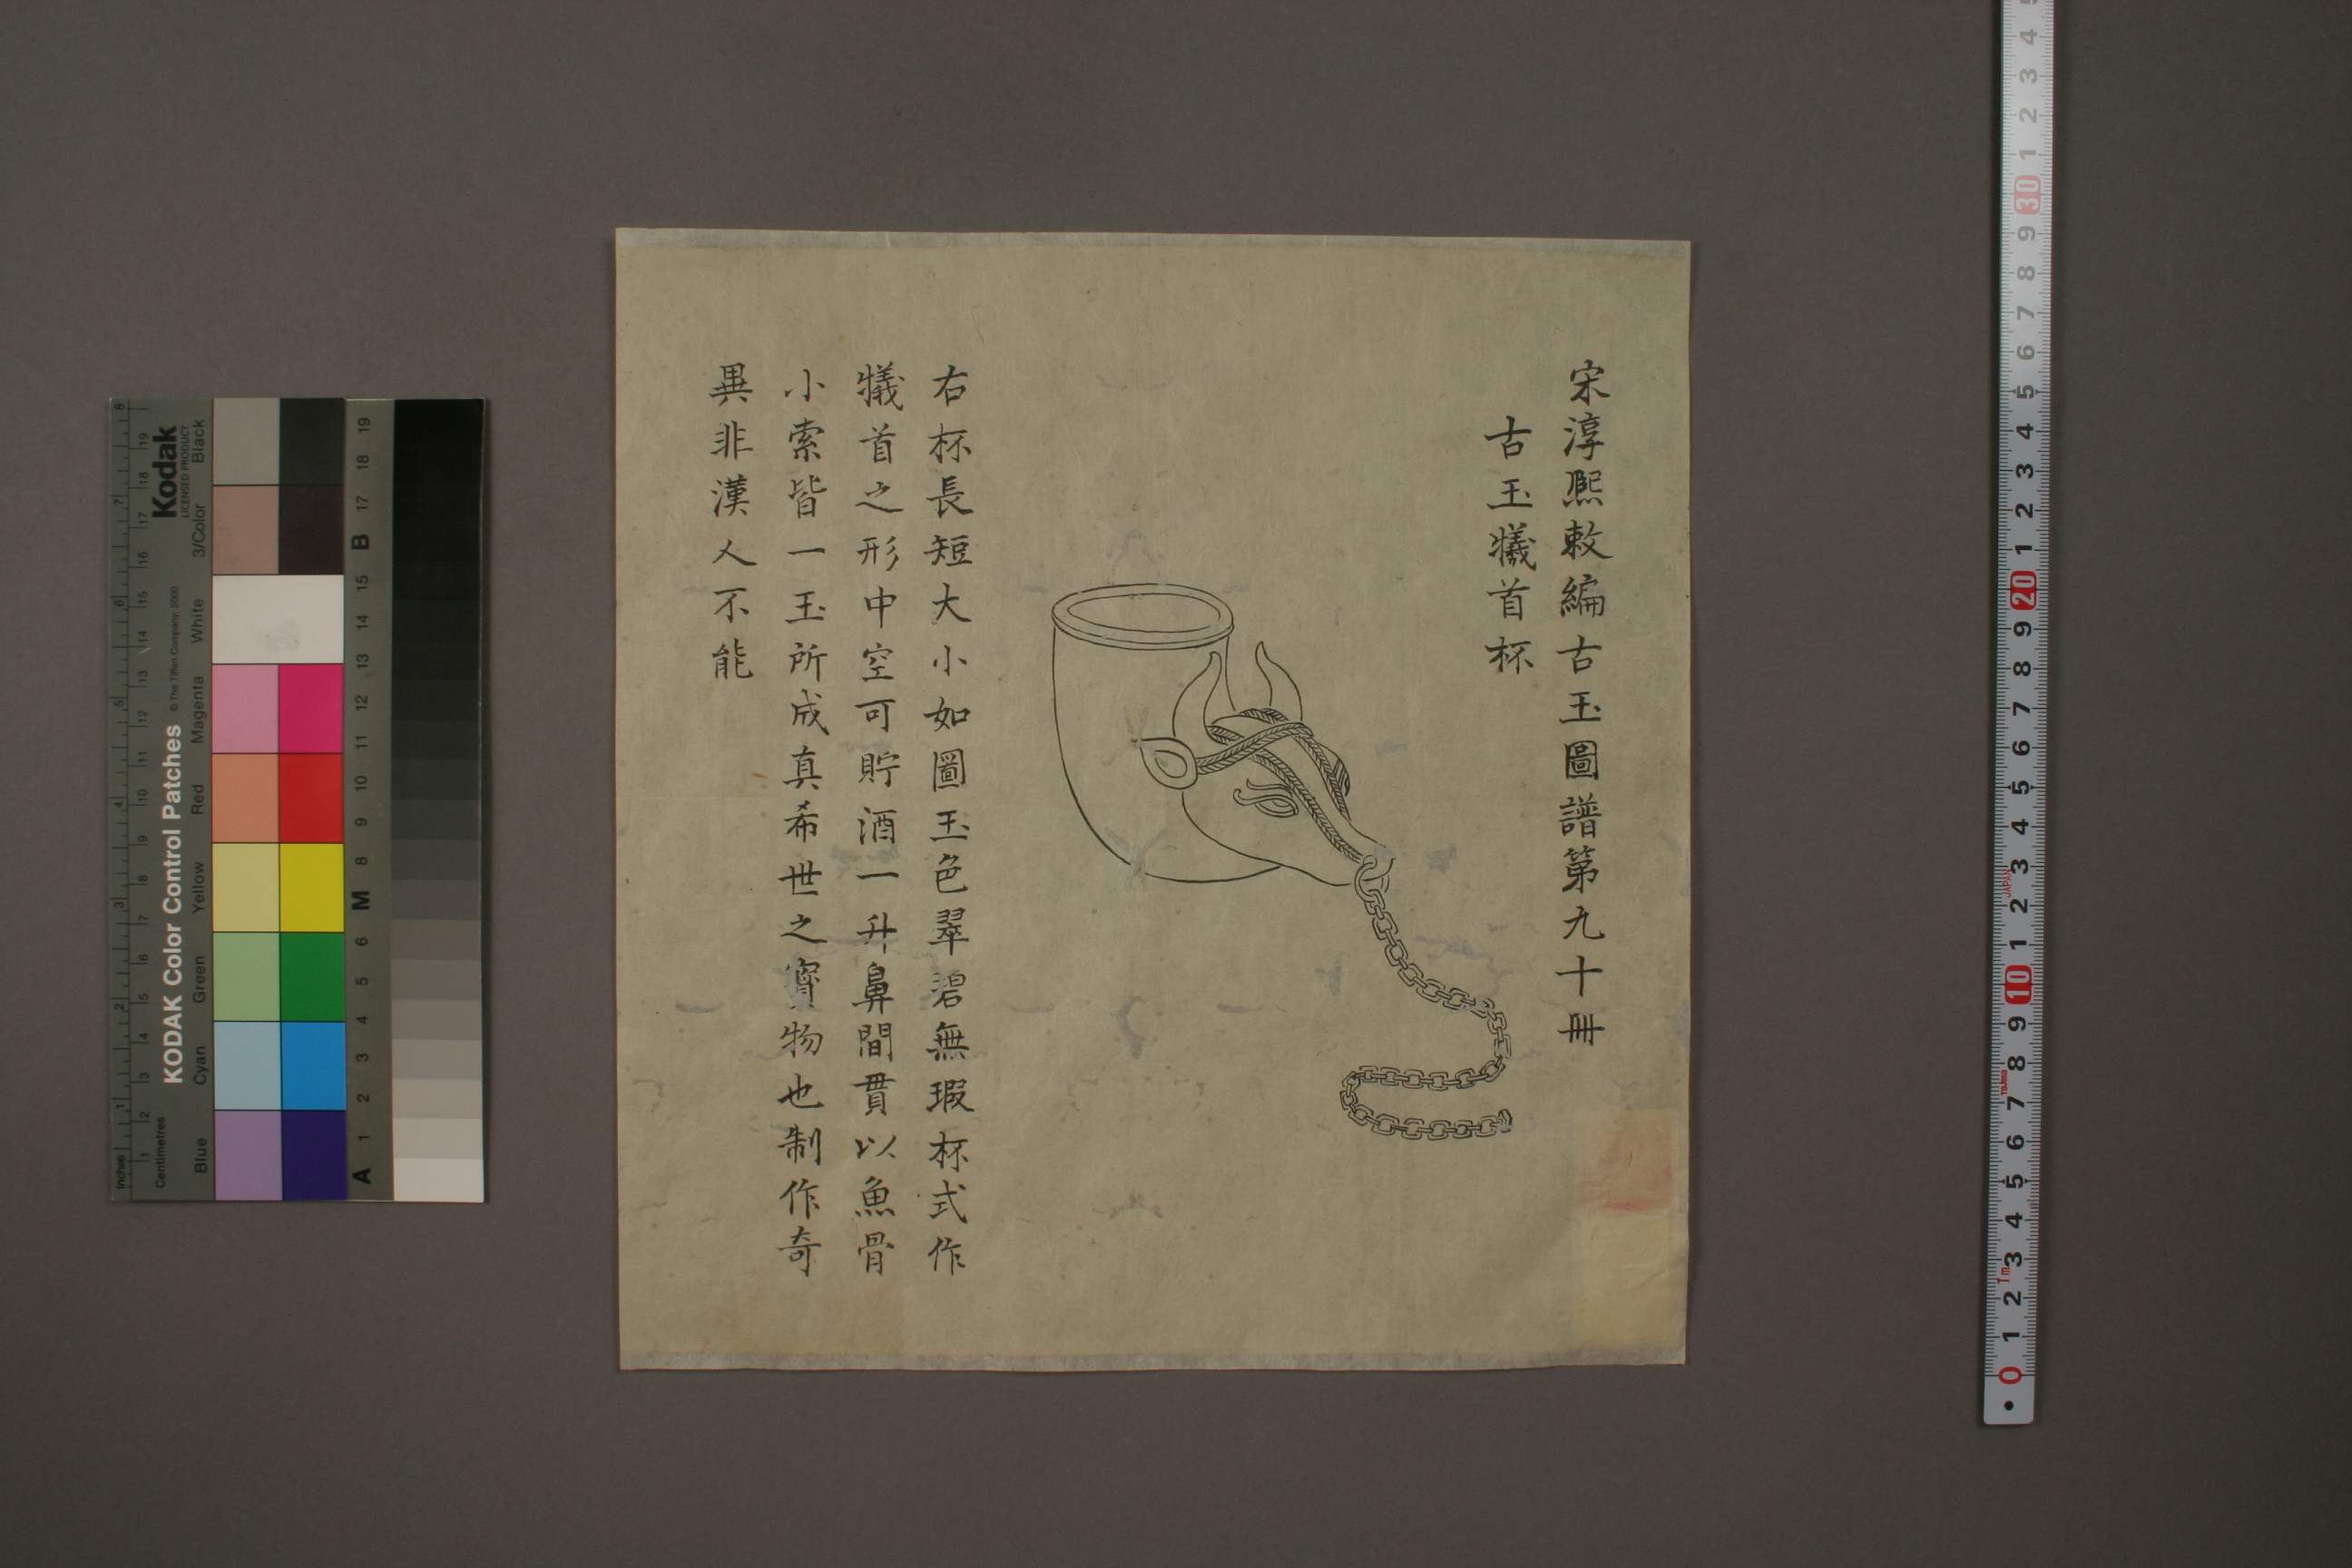 宋淳熙敕編古玉圖譜第九十冊
古玉犠首杯
右杯長短大小如圖玉色翠碧無瑕杯式作
犠首之形中空可貯酒一升鼻間貫以魚骨
小索皆一玉所成真希世之寶物也制作奇
異非漢人不能
KODAK Color Control Patches
© The Tiffen Company, 2000
Kodak
LICENSED PRODUCT
Inches 1 2 3 4 5 6 7 8
Centimetres 1 2 3 4 5 6 7 8 9 10 11 12 13 14 15 16 17 18 19
Blue Cyan Green Yellow Red Magenta White 3/Color Black
A 1 2 3 4 5 6 M 8 9 10 11 12 13 14 15 B 17 18 19
0 1 2 3 4 5 6 7 8 9 10 1 2 3 4 5 6 7 8 9 20 1 2 3 4 5 6 7 8 9 30 1 2 3 4 5
JAPAN